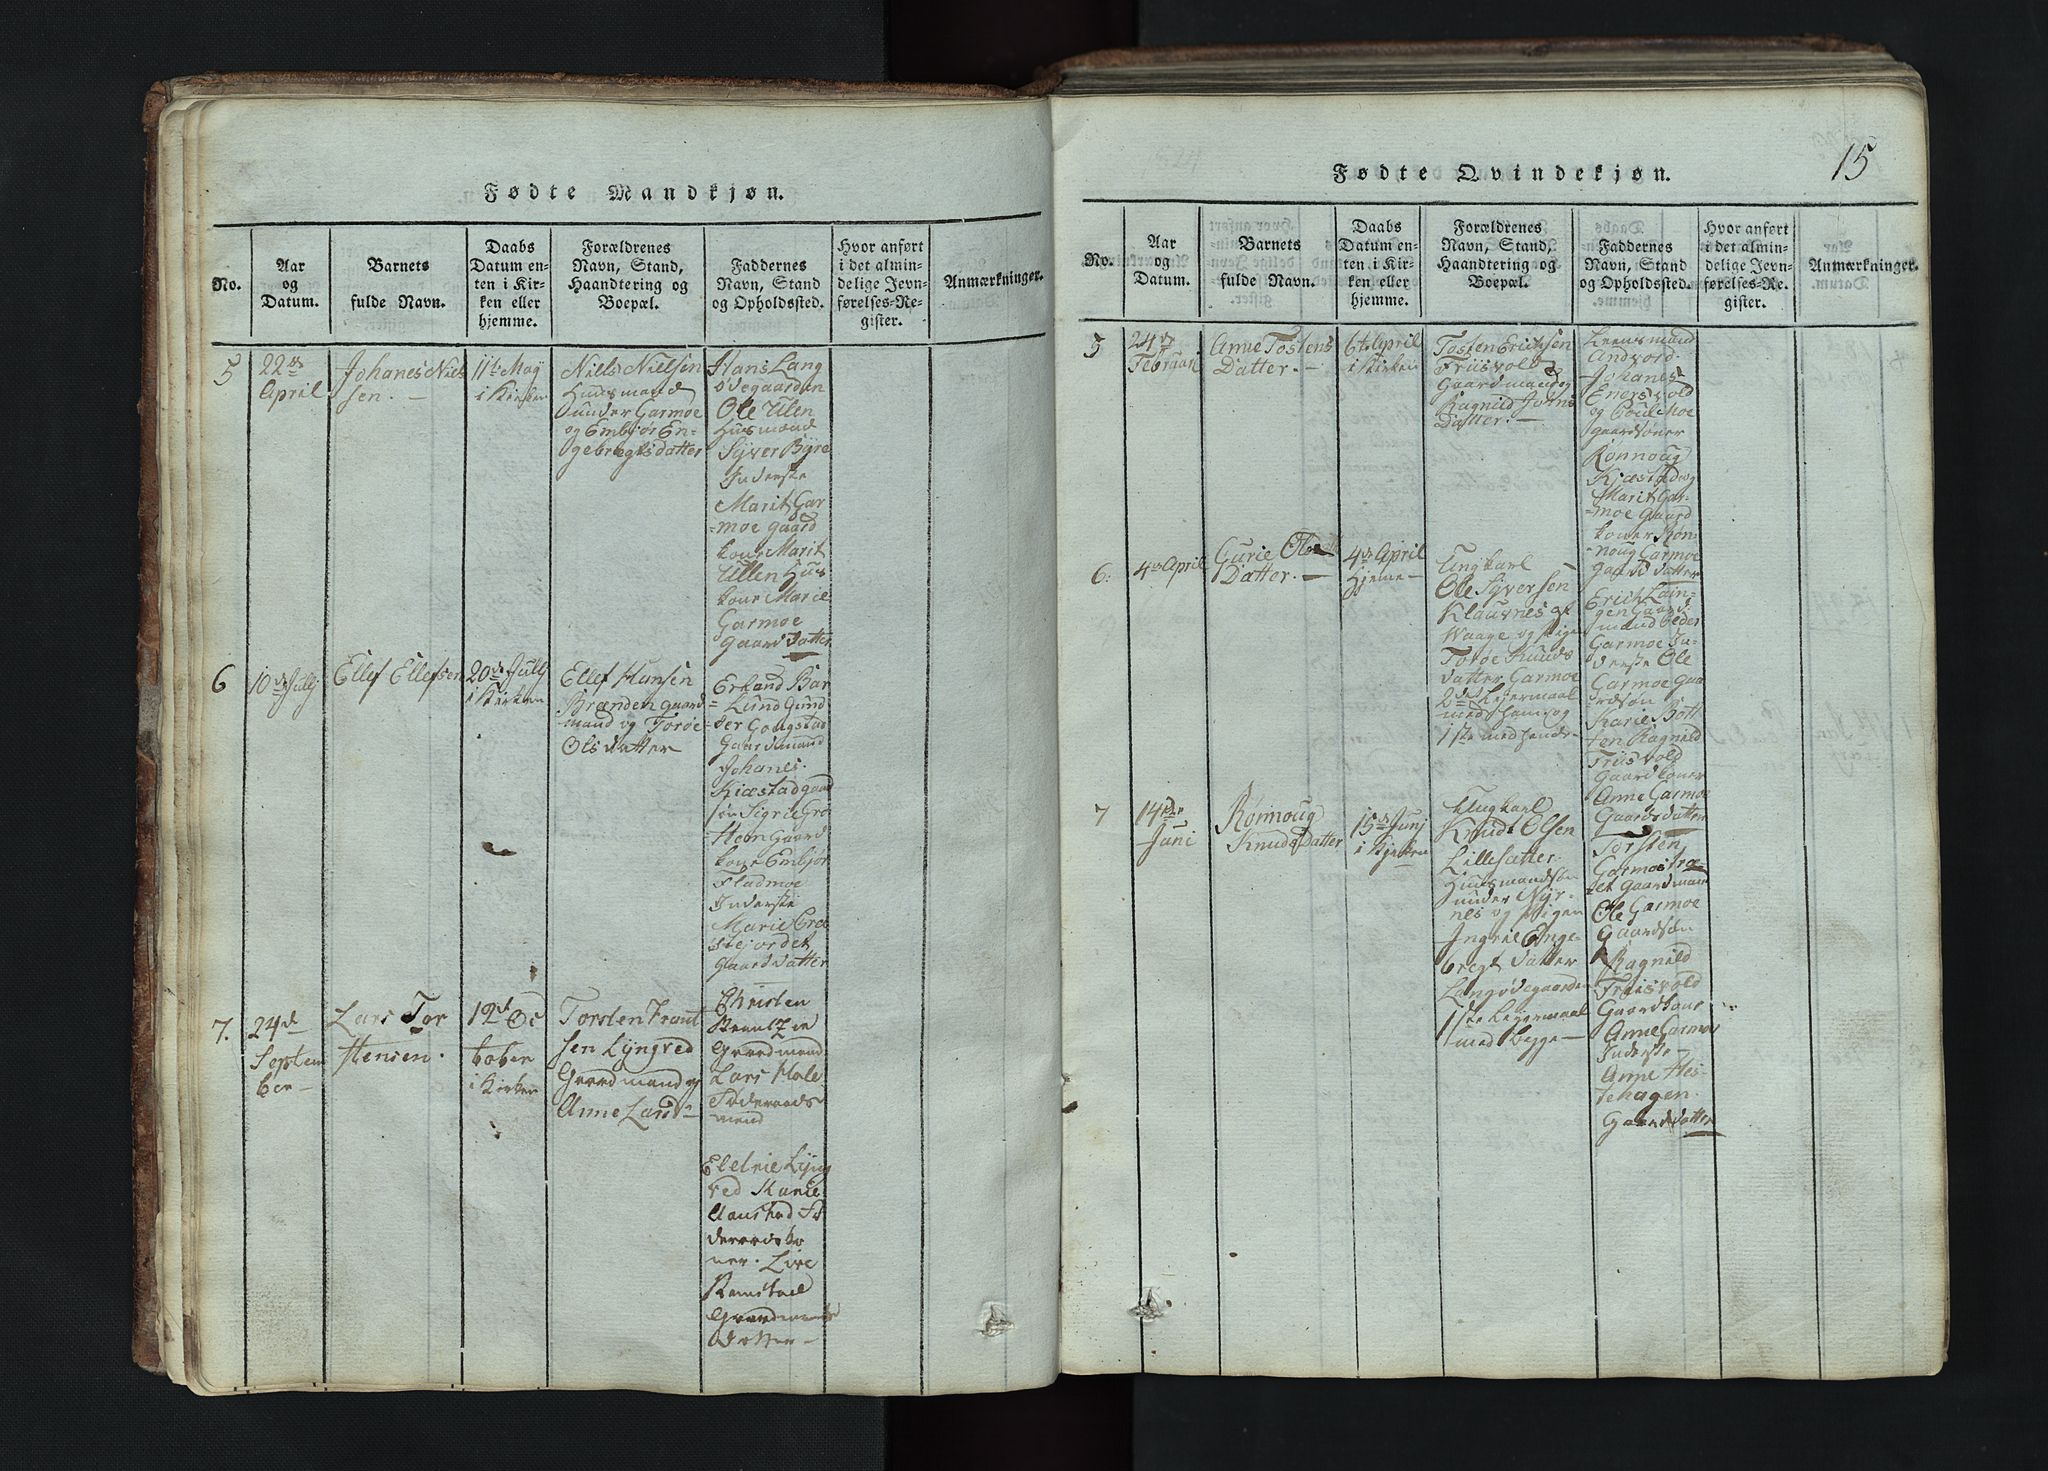 Fødte Mandkjøn.
No.
Aar
og
Datum.
Barnets
fulde Navn.
Daabs
Datum en-
ten i Kir-
ken eller
hjemme.
Forældrenes
Navn, Stand,
Haandtering og
Boepæl.
Faddernes
Navn, Stand
og Opholdssted.
Hvor anført
i det almin-
delige Jevn-
førelses-Re-
gister.
Anmærkninger.
5
22de
April
Johanes Niel
sen. -
11te Maÿ
i Kirken
Niels Nielsen
Huusmand
under Garmoe
og Embjør En-
gebregtsdatter
Hans Lang
ødegaarden
Ole Ulen
Husmænd
Siver Bÿre
Inderste
Marit Gar
=moe gaard
kone Marit
Ullen Hus
kone Marie
Garmoe
Gaard datter
6
10de Julj
Ellef Ellefsen
20de Julj
i Kirken
Ellef Hansen
Brænden gaard
mand og Torøe
Ols datter
Erland Bar
=Lund Gund
der Gougstad
Gaardmænd
Johanes
Kiæstad gaard
søn Sigrie Gro
Heen Gaard
kone Embjør
Fladmoe
Inderste
Marie
Gaard datter
7.
24de
Septem
ber -
Lars Tor
stensen.
12de Oc
tober
i Kirken
Torsten
sen Lÿngved
Gaardmand og
Anne
Christen
Gaardmænd
Lars
Føderaads
mand
Lÿng
ved Marie
Føderaads ko
ner. Live
Gaardmands
Datter -
15
Fødte Qvindekjøn.
No.
Aar
og
Datum.
Barnets
fulde Navn.
Daabs
Datum en-
ten i Kir-
ken eller
hjemme.
Forældrenes
Navn, Stand,
Haandtering og
Boepæl.
Faddernes
Navn, Stand
og Opholdssted.
Hvor anført
i det almin-
delige Jevn-
førelses-Re-
gister.
Anmærkninger.
5
24de
Februari
Anne Tostens
Datter. -
6te April
i Kirken
Tosten Erichsen
Friisvold
Gaardmand og
Ragnild Johns
Datter. -
Leensmand
Andvord.
Johanes
Enersvold
og Poul Moe
gaardsøner
Rønnoug
Kjæstad og
Marit Gar-
=moe Gaard
koner Røn-
noug Garmoe
Gaard datter
6.
4de April
Gurie Ols
Datter. -
4de April
Hjeme -
Ungkarl
Ole Siversen
Klauvnes af
Waage og Pigen
Torøe Knuds
datter Garmoe
2det Leiermaal
med ham og
1ste med hende -
Erich Lain-
gen Gaard-
mand Peder
Garmoe In-
derste Ole
Garmoe Gaa
rdsøn
Karie Bott
ten Ragnild
Friisvold
Gaardkoner
Anne Garmoe
Gaardsdatter
7
14de
Juni
Rønnoug
Knuds Datter
15de Junj
i Kjrken
Ungkarl
Knudt Olsen
Lillesatter
Huusmandsøn
under Nÿr-
nes og Pigen
Ingrie Enge-
bregt datter
Langødegaarden
1ste Lejermaal
med begge -
Torsten
Garmostræ-
et gaardman
Ole Garmoe
Gaardsøn
Ragnild
Friisvold
Gaardkone
Anne Garmoe
Inderste -
Anne Hes-
tehagen.
Gaarddatter